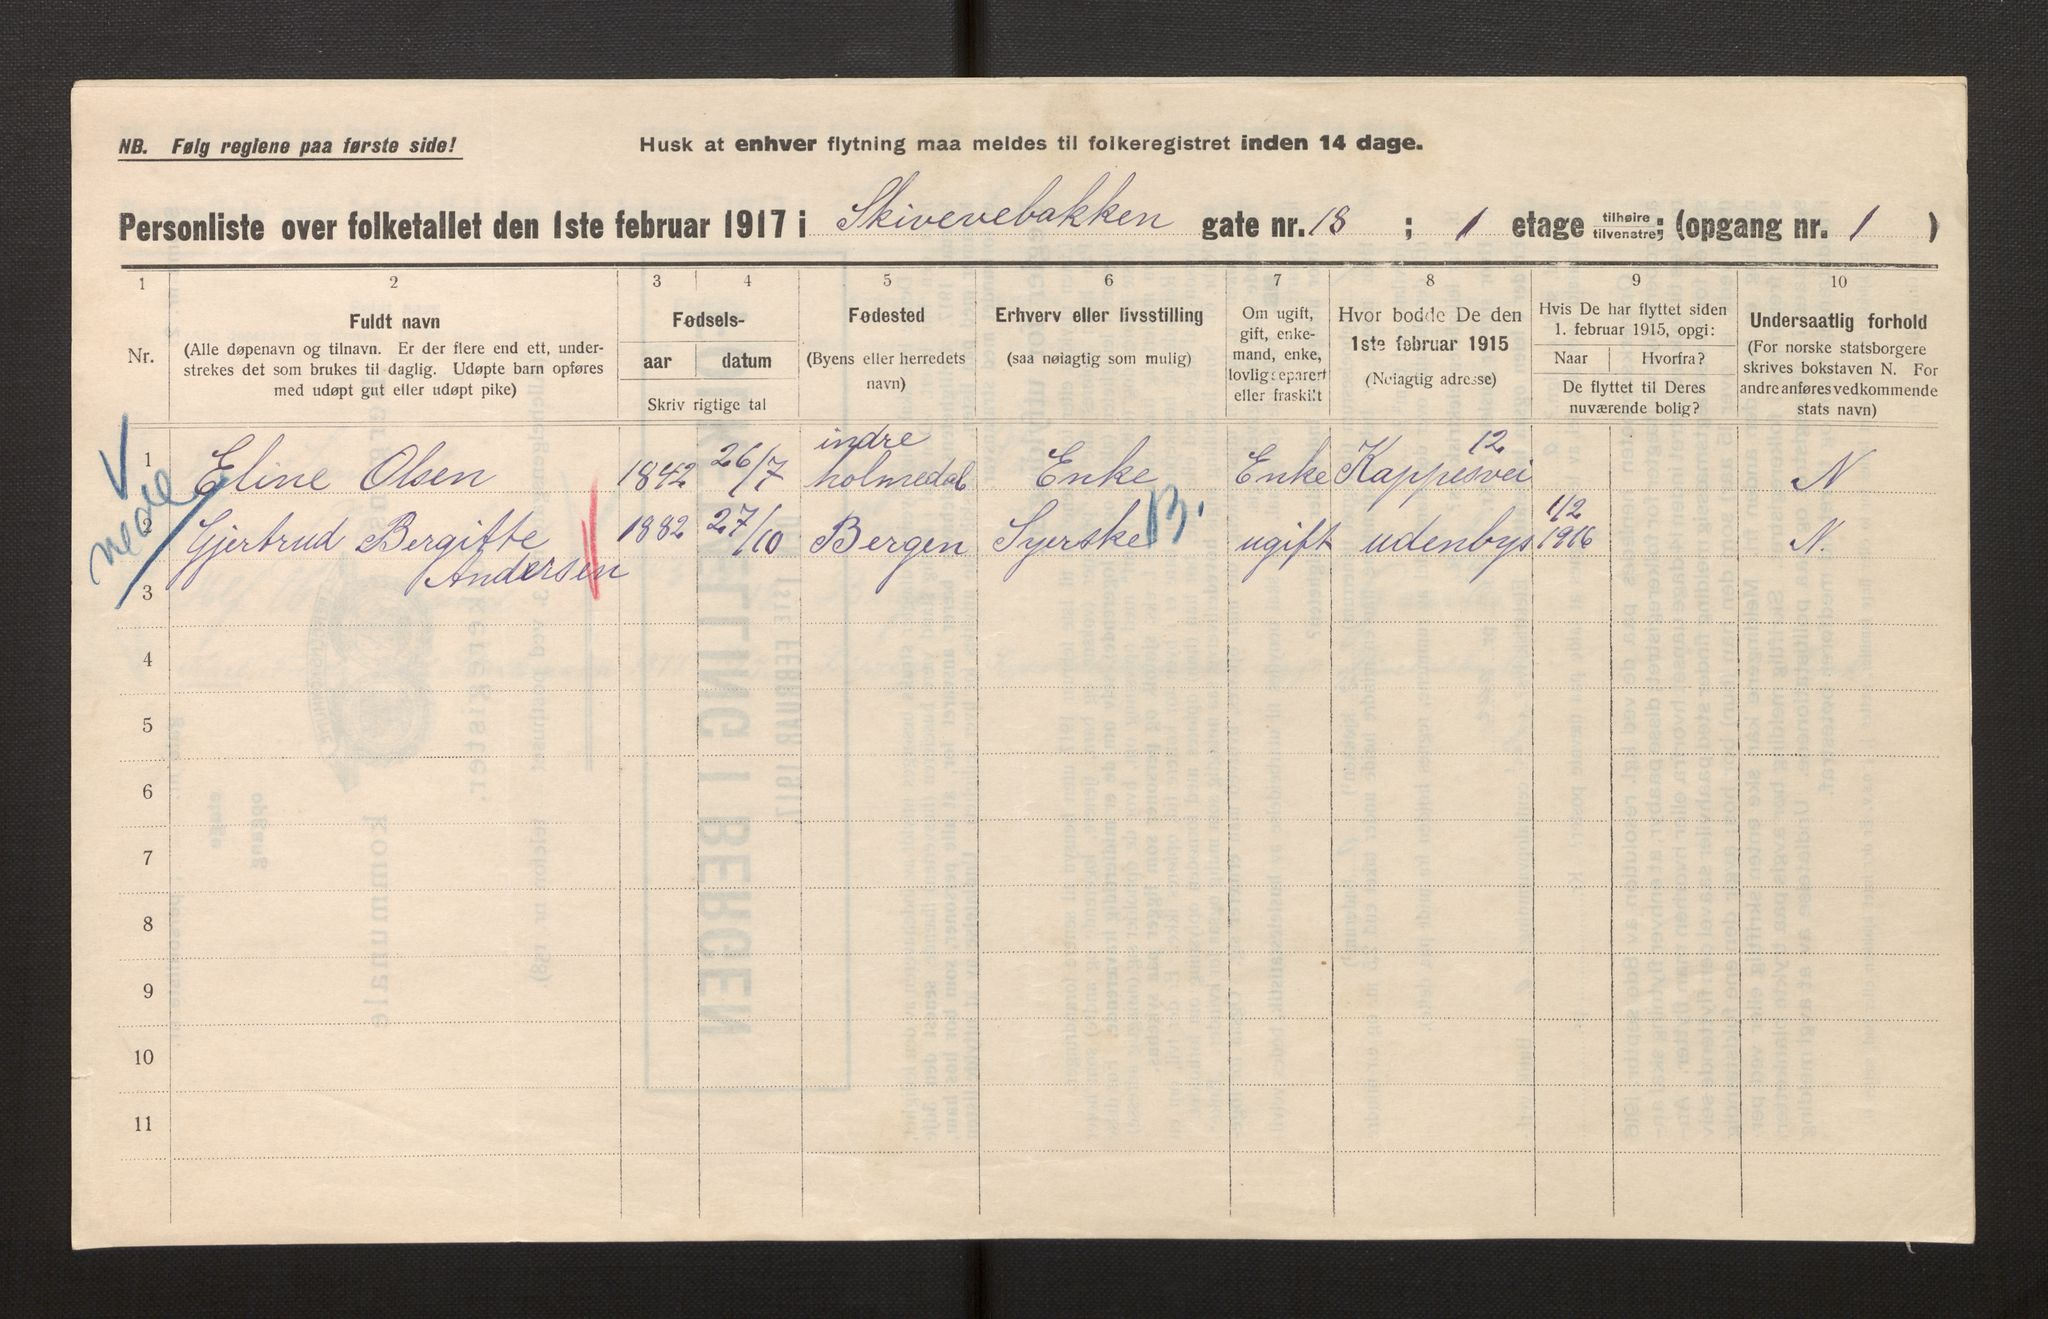 NB. Følg reglene paa første side!
Husk at enhver flytning maa meldes til folkeregistret inden 14 dage.
Personliste over folketallet den 1ste februar 1917 i Skivevebakken gate nr. 18 ; 1 etage tilhøire tilvenstre; (opgang nr. 1 )
1 2 3 4 5 6 7 8 9 10
Nr.
Fuldt navn
(Alle døpenavn og tilnavn. Er der flere end ett, under-
strekes det som brukes til daglig. Udøpte barn opføres
med udøpt gut eller udøpt pike)
Fødsels-
aar datum
Skriv rigtige tal
Fødested
(Byens eller herredets
navn)
Erhverv eller livsstilling
(saa nøiagtig som mulig)
Om ugift,
gift, enke-
mand, enke,
lovlig separert
eller fraskilt
Hvor bodde De den
1ste februar 1915
(Nøiagtig adresse)
Hvis De har flyttet siden
1. februar 1915, opgi:
Naar Hvorfra?
De flyttet til Deres
nuværende bolig?
Undersaatlig forhold
(For norske statsborgere
skrives bokstaven N. For
andre anføres vedkommende
stats navn)
V
nede
1 Eline Olsen 1842 26/7 indre holmedal Enke Enke Kappesvei 12 N
2 Gjertrud Bergitte 1882 27/10 Bergen Syerske B. ugift udenbys 1/2 1916 N.
Andersen
3
4
5
6
7
8
9
10
11